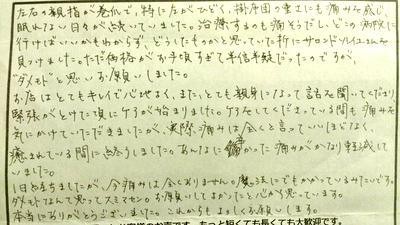 左右の親指が巻爪で、特に左がひどく、掛布団の重さにも痛みを感じ、
眠れない日々が続いていました。治療するのも痛そうだしどこの病院に
行けばいいかもわからず、どうしたものかと思っていた折にサロンド
見つけました。ただ価格がお手頃すぎて半信半疑だったのですが、
"ダメモト"と思いお願いしました。
お店はとてもキレイで心地よく、また、とても親身になって話を聞いてくださり
緊張がとけた頃にケアが始まりました。ケアをしてくださっている間も痛みを
気にかけていただきましたが、実際痛みは全くと言っていいほどなく、
癒されている間に終了しました。あんなに痛かった痛みがかなり軽減して
いました。
1日たちましたが、今痛みは全くありません。魔法にでもかかっているみたいです。
ダメモトなんて思ってスミマセン。お願いしてよかったと心から思っています。
本当にありがとうございました。これからもよろしくお願いします。
もっと短くても長くても大歓迎です。